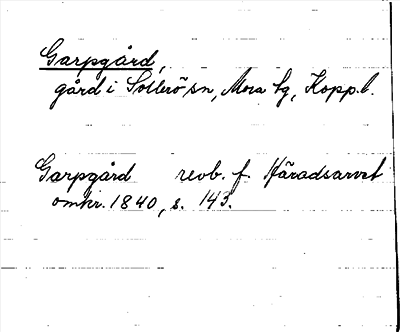 Garpgård,
gård i Sollerö sn, Mora tg, Kopp.l.
Garpgård revb. f. Häradsarvet
omkr. 1840, s. 143.